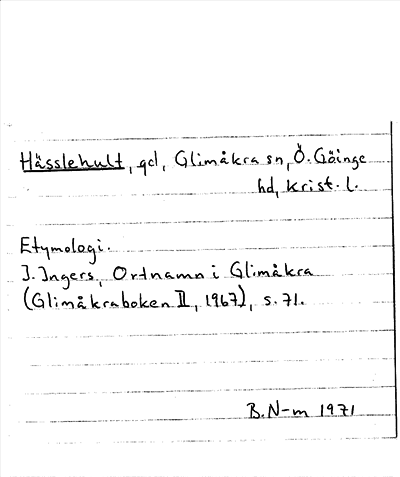 Hässlehult, gd, Glimåkra sn, Ö. Göinge
hd, Krist. l.
Etymologi.
I. Ingers, Ortnamn i Glimåkra
(Glimåkraboken II, 1967), s. 71.
B. N-m 1971